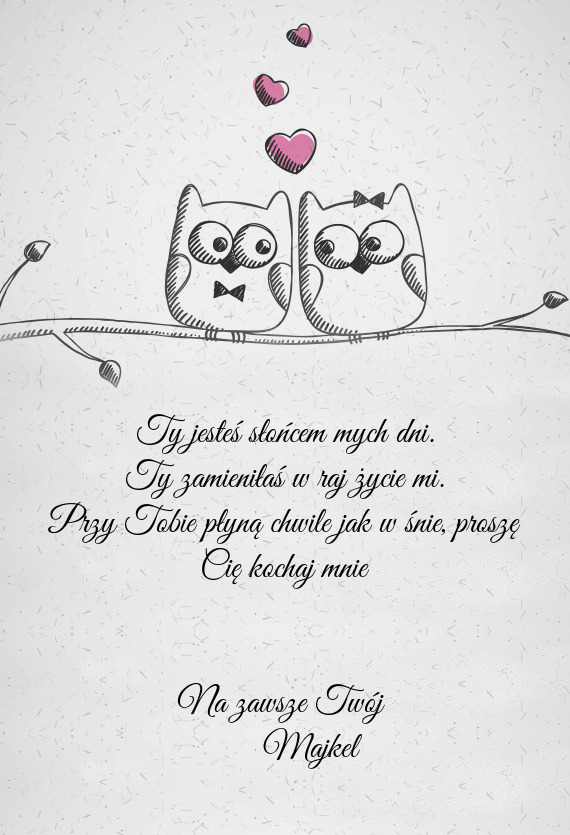 Ty jesteś słońcem mych dni.
Ty zamieniłaś w raj życie mi.
Przy Tobie płyną chwile jak w śnie, proszę
Cię kochaj mnie
Na zawsze Twój
Majkel